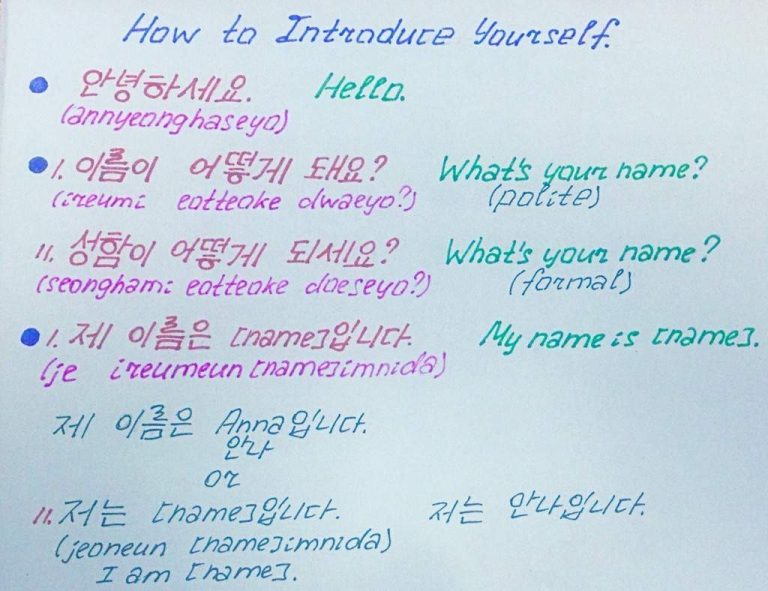 How to Introduce Yourself.
안녕하세요. Hello.
(annyeonghaseyo)
I. 이름이 어떻게 돼요? What's your name?
(ireumi eotteoke dwaeyo?) (polite)
II. 성함이 어떻게 되세요? What's your name?
(seonghami eotteoke doeseyo?) (formal)
I. 제 이름은 [name]입니다. My name is [name].
(je ireumeun [name]imnida)
제 이름은 Anna입니다.
안나
or
II. 저는 [name]입니다. 저는 안나입니다.
(jeoneun [name]imnida)
I am [name].